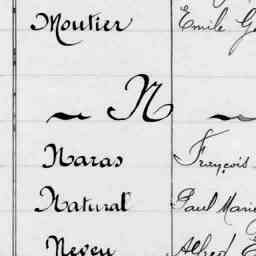 Moutier Emile
~ N ~
Naras François
Natural Paul Marie
Neveu Alfred